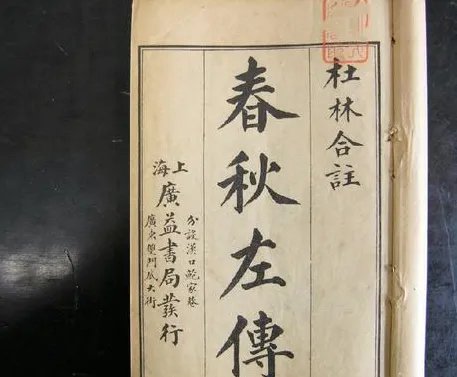 杜林合註
春秋左傳
上海
廣益書局發行
分設漢口鮑家巷
廣東雙門底大街